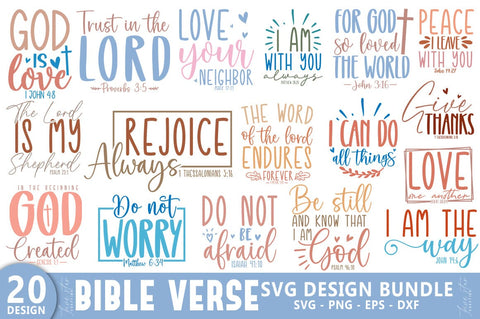 GOD
IS
love
1 JOHN 4:8
Trust in the
LORD
Proverbs 3:5
LOVE
your
NEIGHBOR
I AM
WITH YOU
always
FOR GOD
so loved
THE WORLD
John 3:16
PEACE
I LEAVE
WITH YOU
John 14:27
The Lord
IS MY
Shepherd
PSALM 23:1
REJOICE
Always
1 THESSALONIANS 5:16
THE WORD
of the lord
ENDURES
FOREVER
I CAN DO
all things
Give
THANKS
LOVE
one another
IN THE BEGINNING
GOD
Created
GENESIS 1:1
Do not
WORRY
Matthew 6:34
DO NOT
be
afraid
ISAIAH 41:10
Be still
AND KNOW THAT
I AM
God
PSALM 46:10
I AM THE
way
JOHN 14:6
20
DESIGN
BIBLE VERSE
SVG DESIGN BUNDLE
SVG - PNG - EPS - DXF